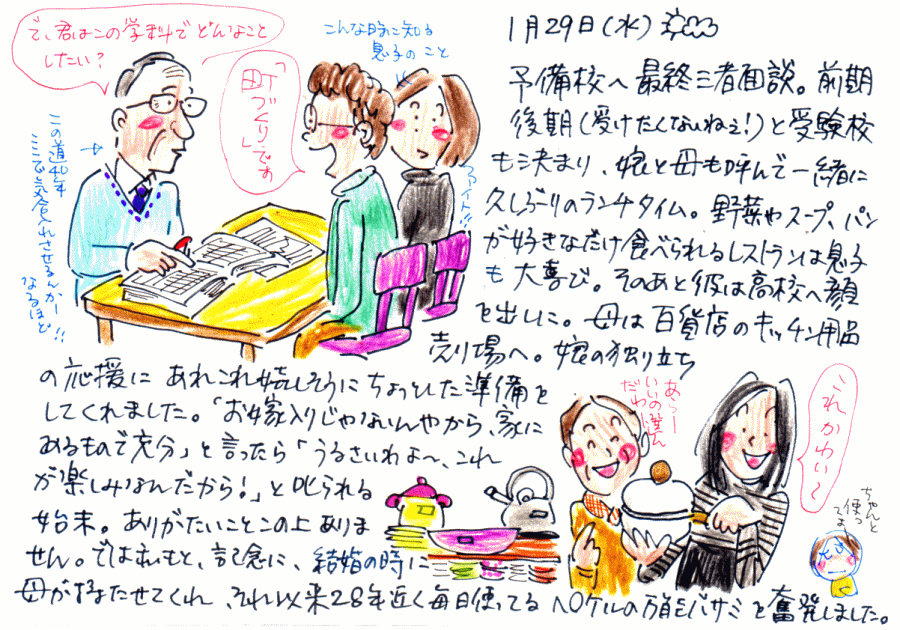 で、君はこの学科でどんなこと
したい？
こんな時に知る
息子のこと
「町づくり」です
この道40年
ここで気合入れさせるんかー
なるほど!!
ファイト!!
1月29日(水)
予備校へ最終三者面談。前期
後期(受けたくないねぇ!)と受験校
も決まり、娘と母も呼んで一緒に
久しぶりのランチタイム。野菜やスープ、パン
が好きなだけ食べられるレストランは息子
も大喜び。そのあと彼は高校へ顔
を出しに。母は百貨店のキッチン用品
売り場へ。娘の独り立ち
の応援にあれこれ嬉しそうにちょっとした準備を
してくれました。「お嫁入りじゃないんやから、家に
あるもので充分」と言ったら「うるさいわよ〜、これ
が楽しみなんだから!」と叱られる
始末。ありがたいことこの上ありま
せん。ではわたしもと、記念に、結婚の時に
母が持たせてくれ、それ以来28年近く毎日使ってるヘンケルの万能バサミを奮発しました。
あっー
いいの選んだわ
これかわい〜
ちゃんと
使ってよ